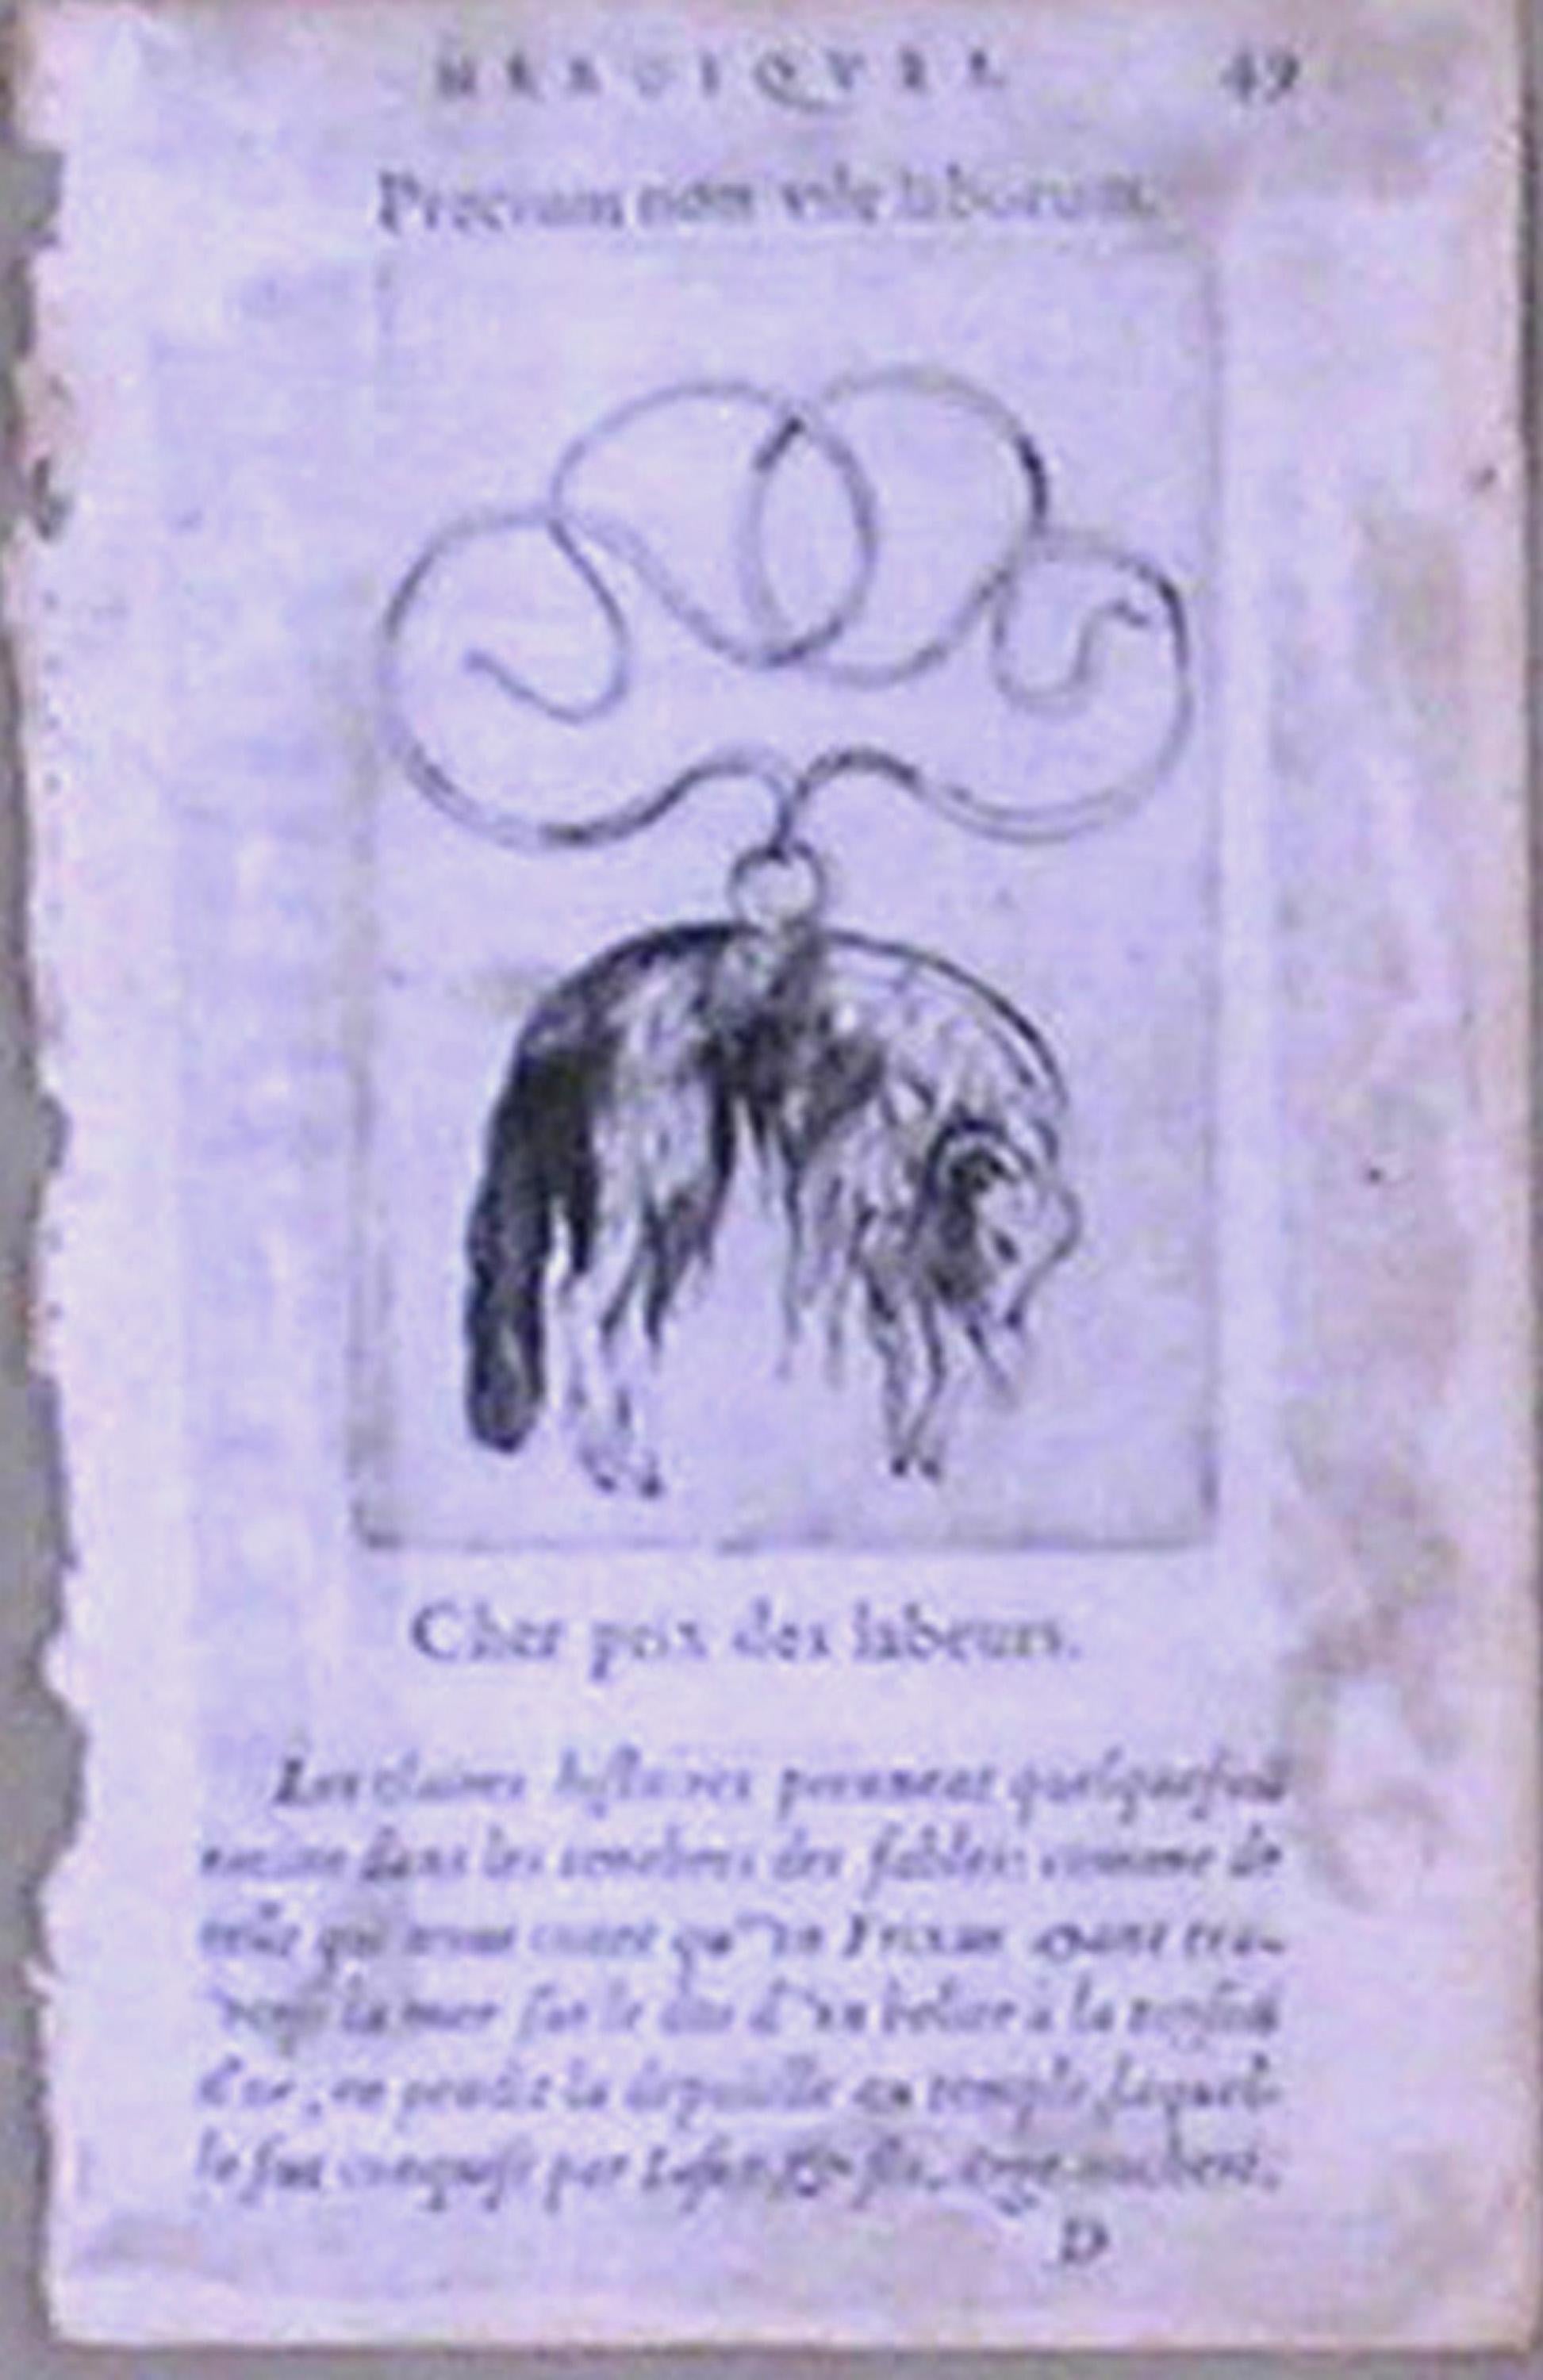 HEROIQVES 49
Precium non vile laborum.
Cher prix des labeurs.
Les claires histoires prennent quelquefois
dans les tenebres des fables: comme de
celle qui nous conte qu'vn Frixus ayant tra-
la mer sur le dos d'vn belier à la
d'or, en pendit la depouille au temple, laquel-
le fut par Iason &
D